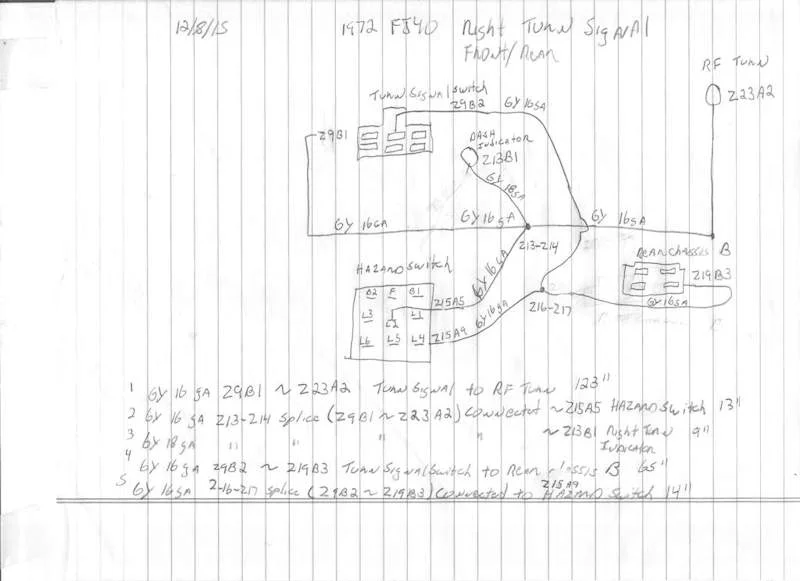 12/8/15
1972 FJ40 Right Turn Signal
Front/Rear
RF Turn
Z23A2
Turn Signal Switch
Z9B2
GY 16 gA
Z9B1
DASH
INDICATOR
Z13B1
GY 18gA
GY 16GA
GY 16gA
GY 16gA
Z13-Z14
B
Rear Chassis
Z19B3
GY 16gA
HAZARD Switch
GY 16 GA
B2 F B1
Z15A5
L3 L2 L1
GY 16gA
Z16-Z17
L6 L5 L4
Z15A9
1 GY 16 gA Z9B1 ~ Z23A2 Turn Signal to RF Turn 123"
2 GY 16 gA Z13-Z14 Splice (Z9B1 ~ Z23A2) Connected ~ Z15A5 HAZARD Switch 13"
3 GY 18 gA " " " " ~ Z13B1 Right Turn 9"
Indicator
4 GY 16 gA Z9B2 ~ Z19B3 Turn Signal Switch to Rear Chassis B 65"
5 GY 16 gA Z-16-Z17 Splice (Z9B2 ~ Z19B3) Connected to Z15A9 HAZARD Switch 14"